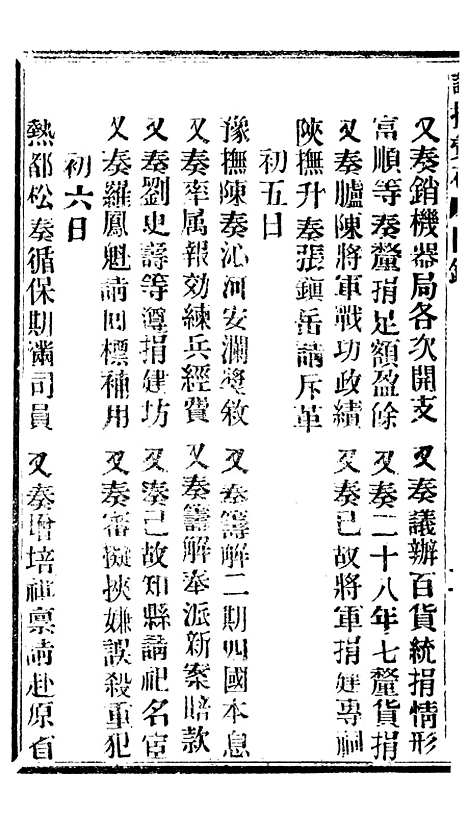 又奏銷機器局各次開支　又奏議辦百貨統捐情形
富順等奏釐捐足額盈餘　又奏二十八年七釐貨捐
又奏臚陳將軍戰功政績　又奏已故將軍捐建專祠
陝撫升奏張鎭岳請斥革
初五日
豫撫陳奏沁河安瀾獎敘　又奏籌解二期四國本息
又奏率属報効練兵經費　又奏籌解奉派新案賠款
又奏劉史壽等遵捐建坊　又奏已故知縣請祀名宦
又奏羅鳳魁請囘標補用　又奏審擬挾嫌誤殺重犯
初六日
熱都松奏循保期滿司員　又奏增培禎稟請赴原省